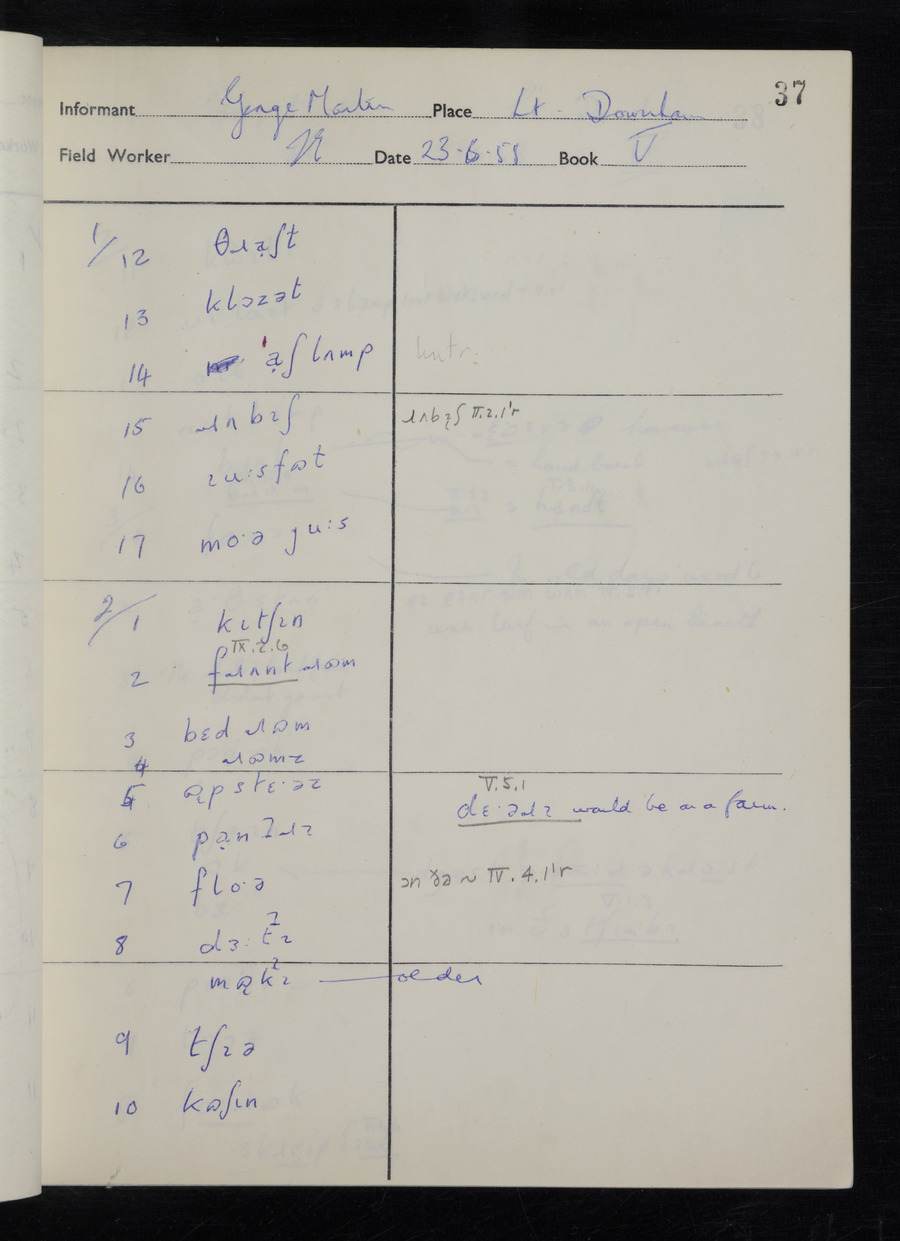 37
Informant George Martin Place Lt. Downham
Field Worker Date 23.6.58 Book V
1/12 θɹa̜ʃt
13 klɔzət
14 'a̜ʃ lʌmp
15 ɹʌbɪʃ ɹʌbɪ̞ʃ II.2.1'r
16 ɪu:sfɷt
17 mo·ə ju:s
2/1 kɪtʃɪn
IX.2.6
2 fɹʌnt ɹɷm
3 bɛd ɹɷm
4 ɹɷmz
5 ɷ̜pstɛ·əz V.5.1
dɛ·əɹɪ would be on a farm.
6 pa̜nʔɹɪ
7 flo·ə ən ðə ~ IV.4.1'r
8 dɜ:tʔɪ
mɷ̜kʔɪ — older
9 tʃɪə
10 kɷʃɪn